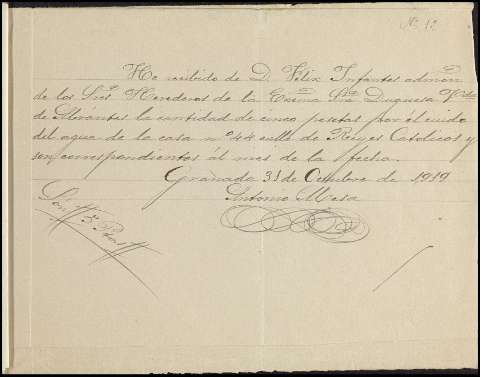 Nº 12
He recibido de D. Felix Infantes admon
de los Sres Herederos de la Excma Sra Duquesa Vda
de Abrantes la cantidad de cinco pesetas por el cuido
del agua de la casa nº 44 calle de Reyes Catolicos y
son correspondientes al mes de la fecha.
Granada 31 de Octubre de 1919
Antonio Mesa
Son 5 Ptas